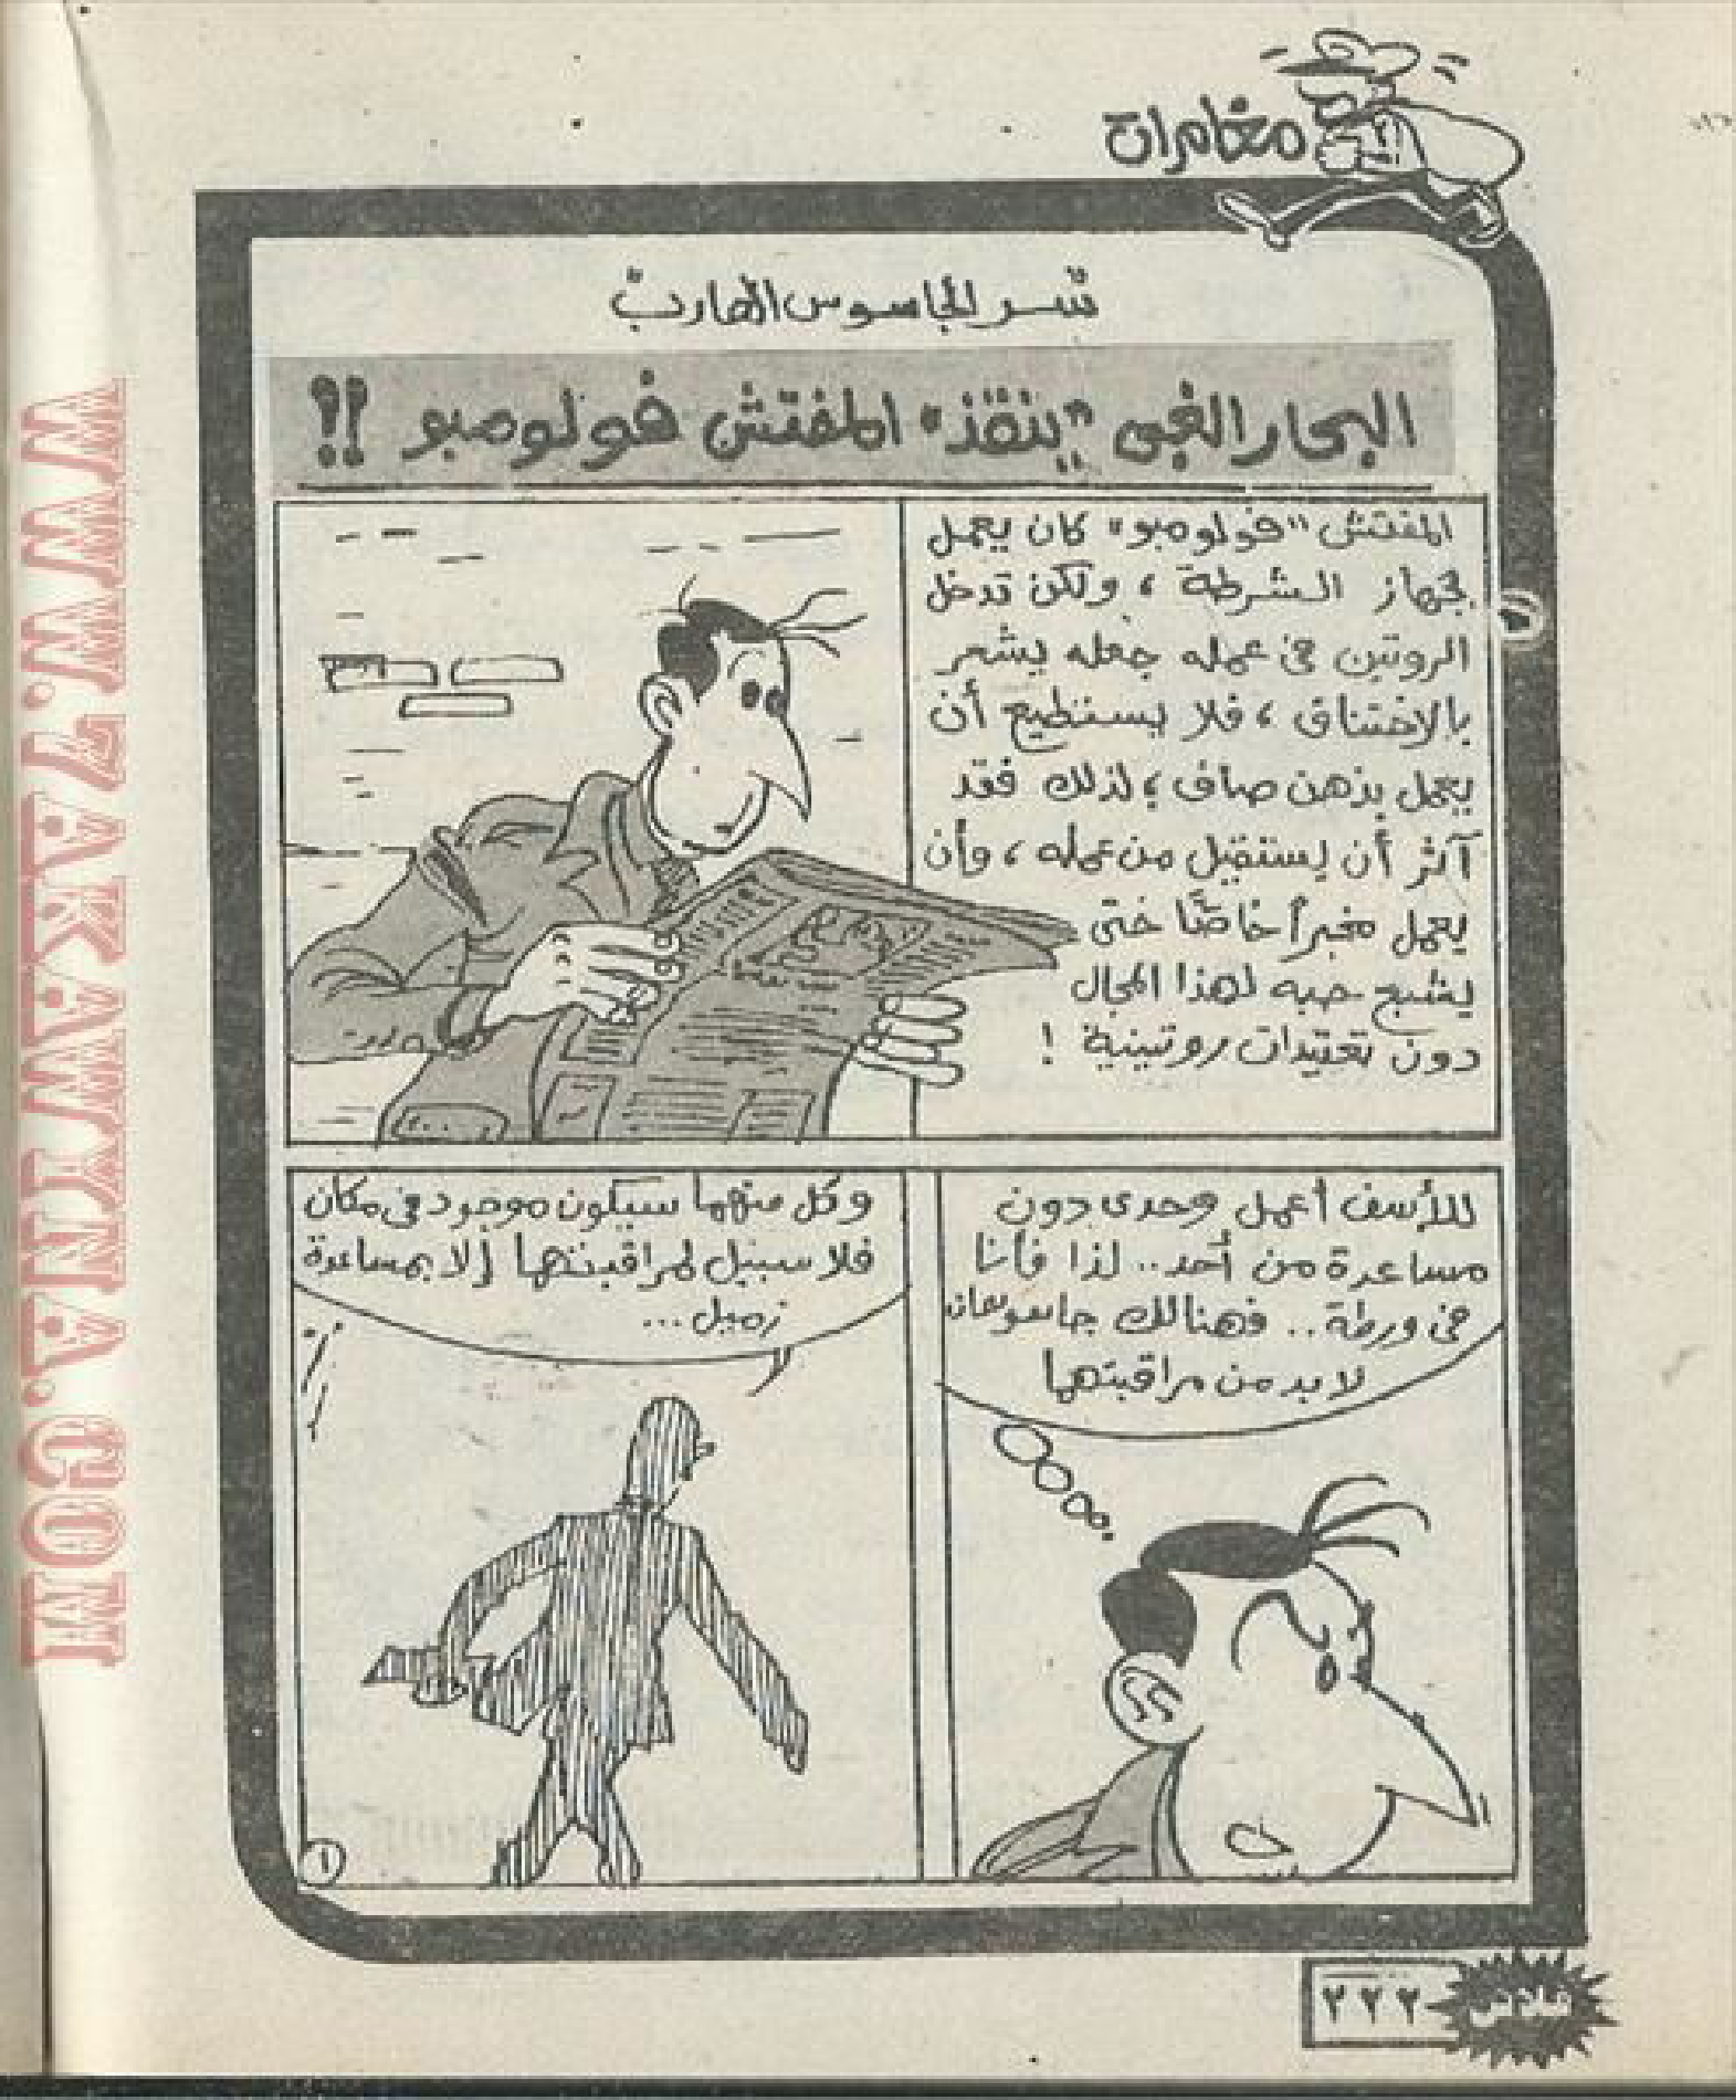 مغامرات
سر الجاسوس الهارب
البحار الغبى "ينقذ" المفتش فولومبو !!
المفتش "فولومبو" كان يعمل
بجهاز الشرطة ، ولكن تدخل
الروتين فى عمله جعله يشعر
بالاختناق ، فلا يستطيع أن
يعمل بذهن صاف ؛ لذلك فقد
آثر أن يستقيل من عمله ، وأن
يعمل مخبراً خاصًّا حتى
يشبع حبه لهذا المجال
دون تعقيدات روتينية !
للأسف أعمل وحدى دون
مساعدة من أحد .. لذا فأنا
فى ورطة .. فهنالك جاسوسان
لا بد من مراقبتهما
وكل منهما سيكون موجود فى مكان
فلا سبيل لمراقبتهما إلا بمساعدة
زميل ...
١
فلاش
٢٢٢
WWW.7AKAWITNA.COM